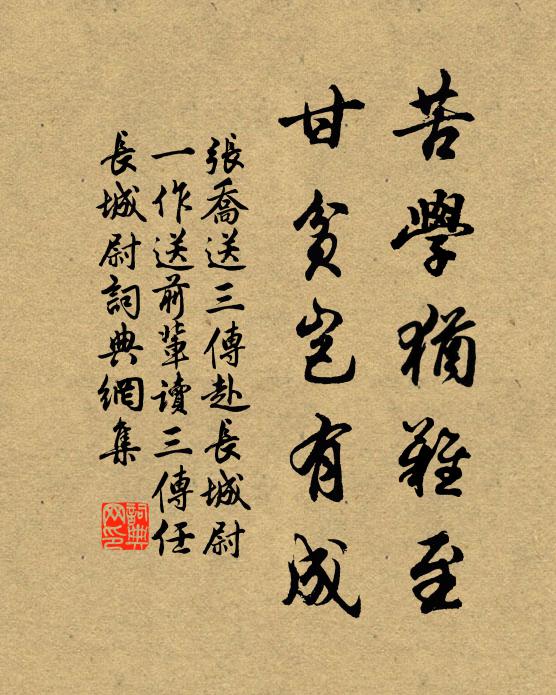 苦學猶難至
甘貧豈有成
張喬送三傳赴長城尉
一作送前輩讀三傳任
長城尉詞典網集
詞典網印